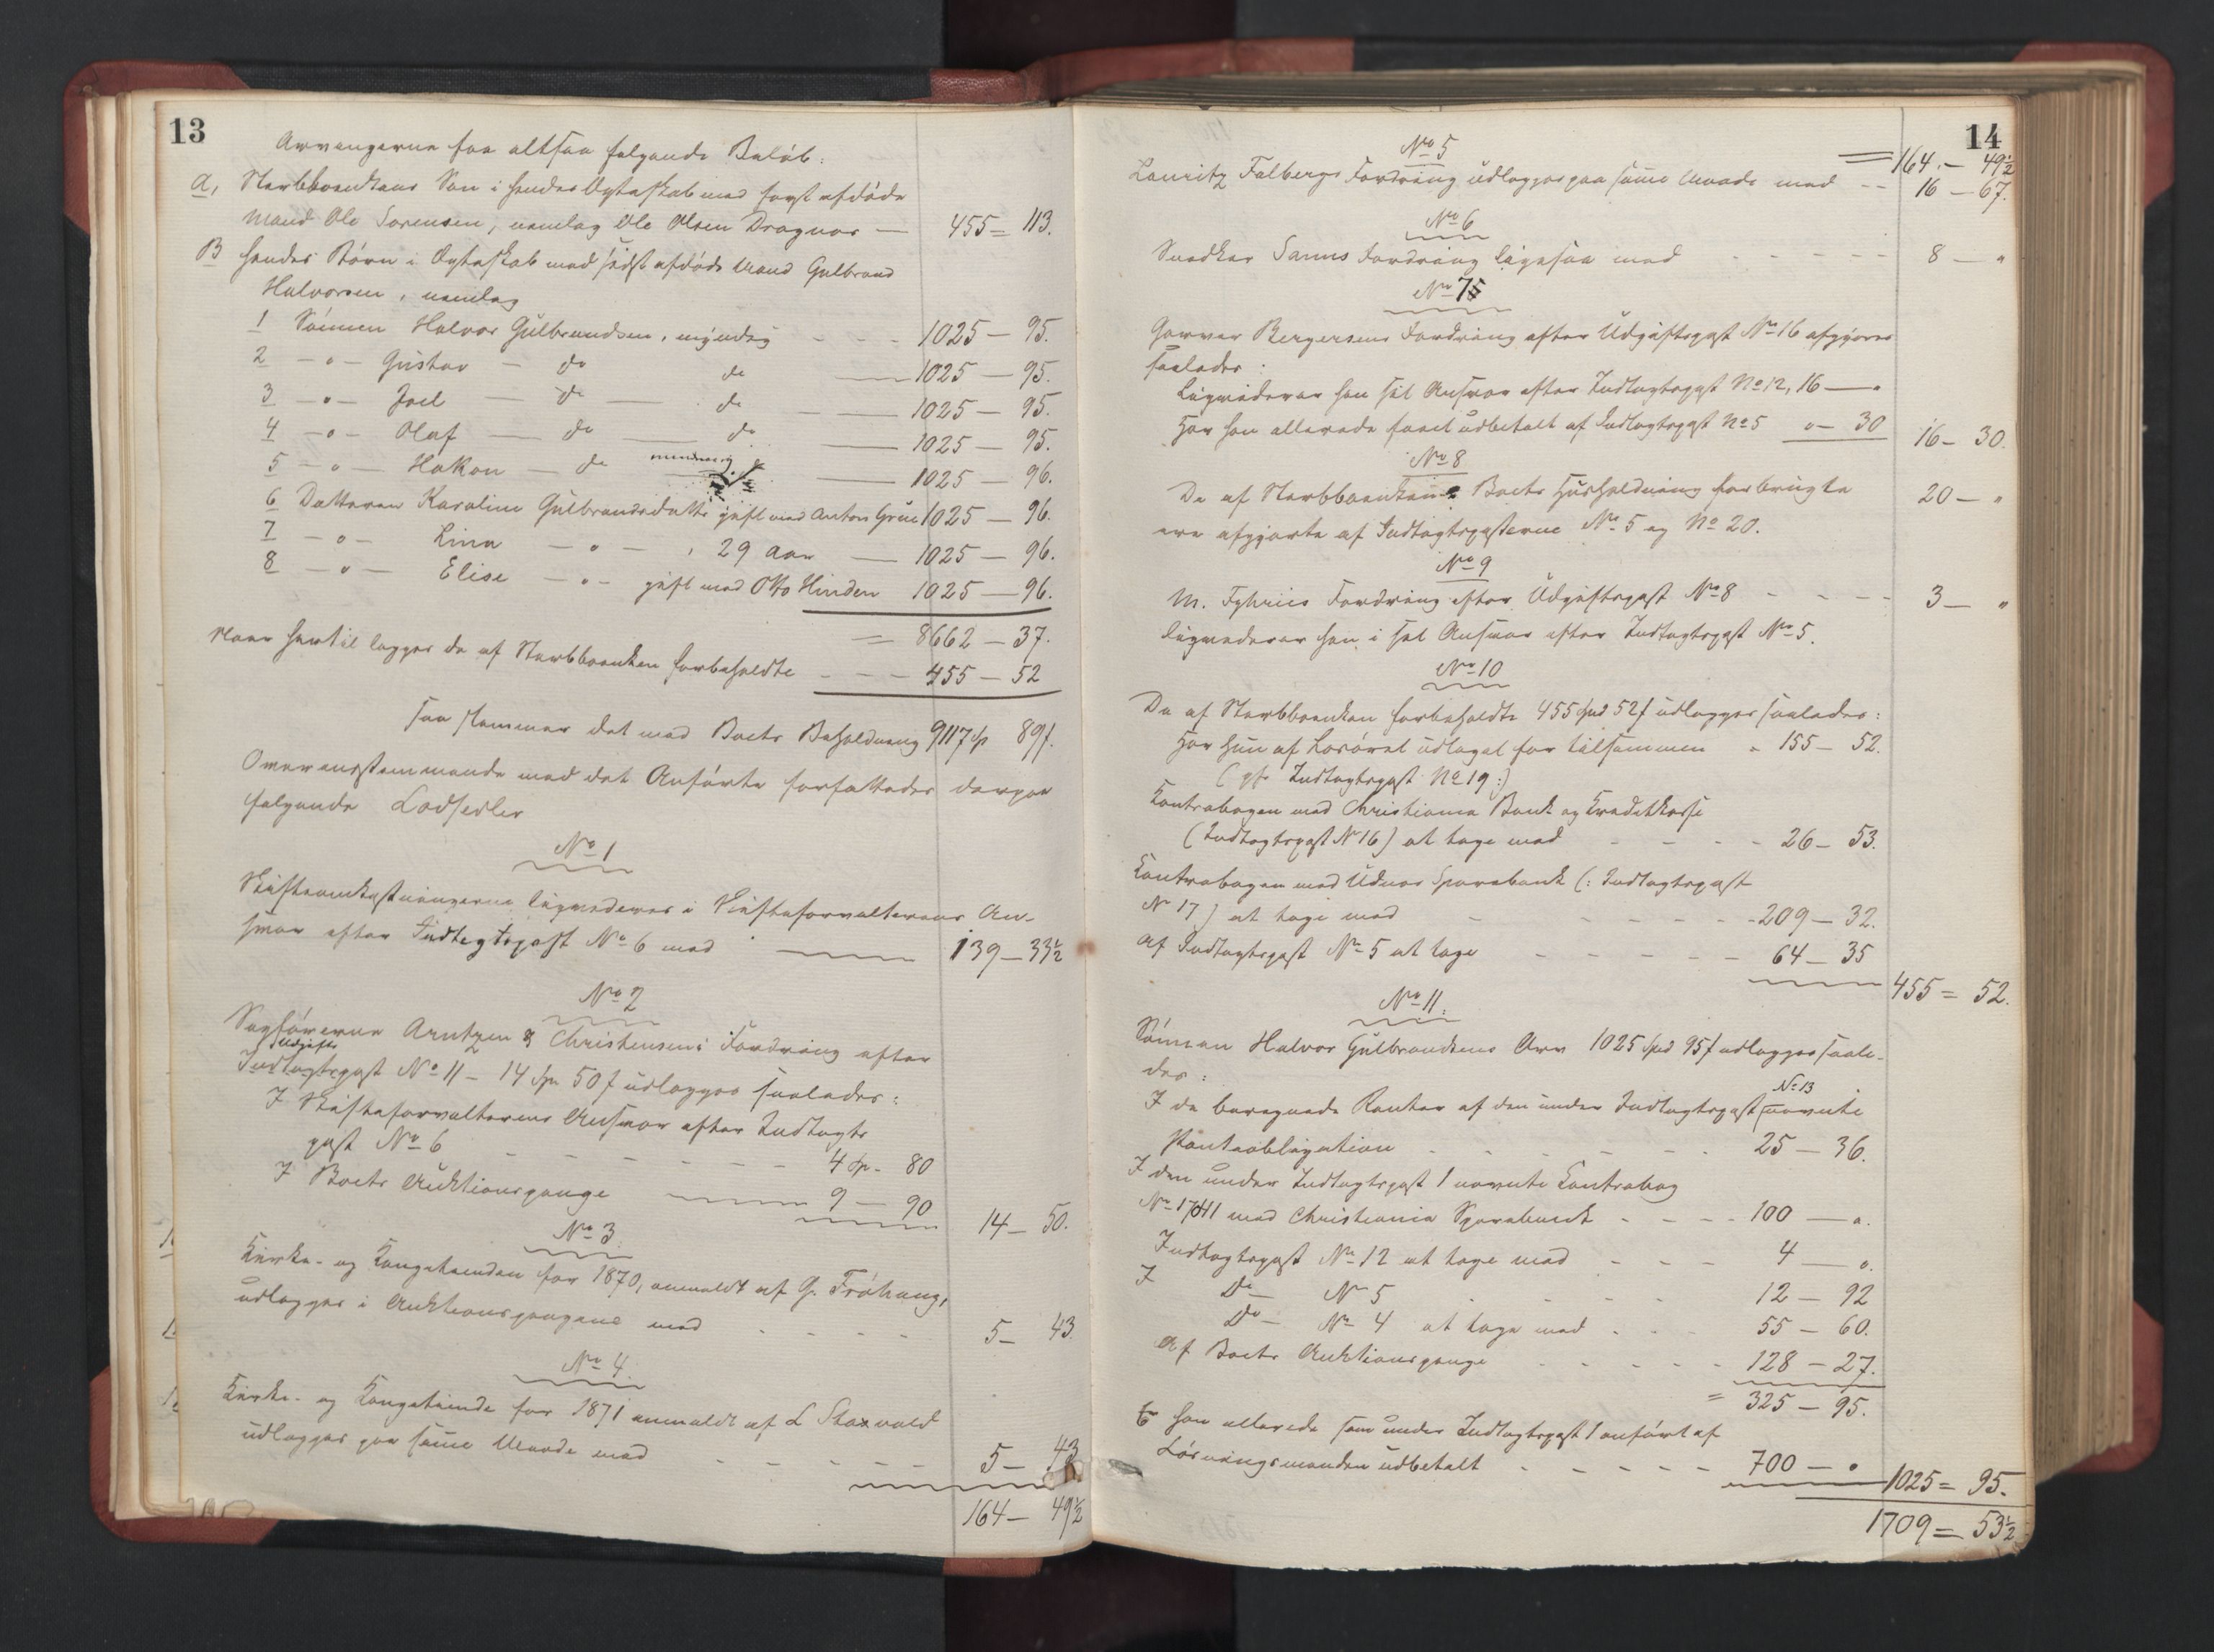 13
Arvingerne faa altsaa følgende Beløb:
a, Stervboenkens Søn i hendes Ægteskab med først afdøde
Mand Ole Sorensen, nemlig Ole Olsen Dragvos — 455 = 113.
B hendes Børn i Ægteskab med sidst afdøde Mand Gulbrand
Halvorsen, nemlig
1 Sønnen Halvor Gulbrandsen, myndig - - - 1025 — 95.
2 —„— Gustav — do do — 1025 — 95.
3 —„— Joel — do — do — 1025 — 95.
4 —„— Olaf — do — do — 1025 — 95.
5 —„— Hakon — do mindreaarig — 1025 — 96.
6 Datteren Karoline Gulbrandsdatter gift med Anton Grue 1025 — 96.
7 —„— Lina —„— , 29 Aar — 1025 — 96.
8 —„— Elise —„— gift med Otto Hinden 1025 — 96.
= 8662 — 37.
Naar hertil lægges de af Stervboenken forbeholdte - - - 455 — 52
saa stemmer det med Boets Beholdning 9117 Sp 89 s.
Overensstemmende med det Anførte forfattedes derpaa
følgende Lodsedler
No 1
Skifteomkostningerne liqvideres i Skifteforvalterens An-
svar efter Indtægtspost No 6 med — 139 — 33½
No 2
Sagførerne Arntzen & Christensens Fordring efter
Udgifts
Indtægtspost No 11 — 14 Sp. 50 s udlægges saaledes:
I Skifteforvalterens Ansvar efter Indtægts
post No 6 - - - - - - 4 Sp. 80
I Boets Auktionspenge — 9 — 90
14 — 50.
No 3.
Kirke- og Kongetienden for 1870, anmeldt af G. Fröhaug,
udlægges i Auktionspengene med - - - - 5 — 43.
No 4.
Kirke- og Kongetiende for 1871 anmeldt af L Staxvold
udlægges paa samme Maade med - - - - - 5 — 43
164 — 49½
14
= 164. — 49½
No 5
Lauritz Falbergs Fordring udlægges paa samme Maade med - - 16 — 67.
No 6
Snedker Sanns Fordring ligesaa med - - - - - 8 — „
No 7
Garver Bergersens Fordring efter Udgiftspost No 16 afgjøres
saaledes:
Liqviderer han sit Ansvar efter Indtægtspost No 12, 16 — „
Har han allerede faaet udbetalt af Indtægtspost No 5 „ — 30 16 — 30.
No 8
De af Stervboenken i Boets Husholdning forbrugte 20 — „
ere afgjorte af Indtægtsposterne No 5 og No 20.
No 9
M. Fyhries Fordring efter Udgiftspost No 8 - - - - 3 — „
liqviderer han i sit Ansvar efter Indtægtspost No 5.
No 10
De af Stervboenken forbeholdte 455 Spd 52 s udlægges saaledes:
Har hun af Losøret udlagt for tilsammen „ 155 — 52.
(cfr Indtægtspost No 19:)
Kontrabogen med Christiania Bank og Kreditkasse
(Indtægtspost No 16) at tage med - - - - 26 — 53.
Kontrabogen med Udnes Sparebank (: Indtægtspost
No 17) at tage med - - - - - 209 — 32.
Af Indtægtspost No 5 at tage - - - - - 64 — 35
455 = 52.
No 11.
Sønnen Halvor Gulbrandsens Arv 1025 Spd 95 s udlægges saale-
des:
No 13
I de beregnede Renter af den under Indtægtspost nævnte
Panteobligation - - - - - - 25 — 36.
I den under Indtægtspost 1 nævnte Kontrabog
No 17041 med Christiania Sparebank - - - - 100 — „.
Indtægtspost No 12 at tage med - - - 4 — „.
I Do No 5 - - - - 12 — 92
Do No 4 at tage med - - 55 — 60.
Af Boets Auktionspenge - - - - - 128 — 27.
= 325 — 95.
Er han allerede som under Indtægtspost 1 anført af
Løsningsmanden udbetalt - - - - - 700 — „ 1025 = 95.
1709 = 53½